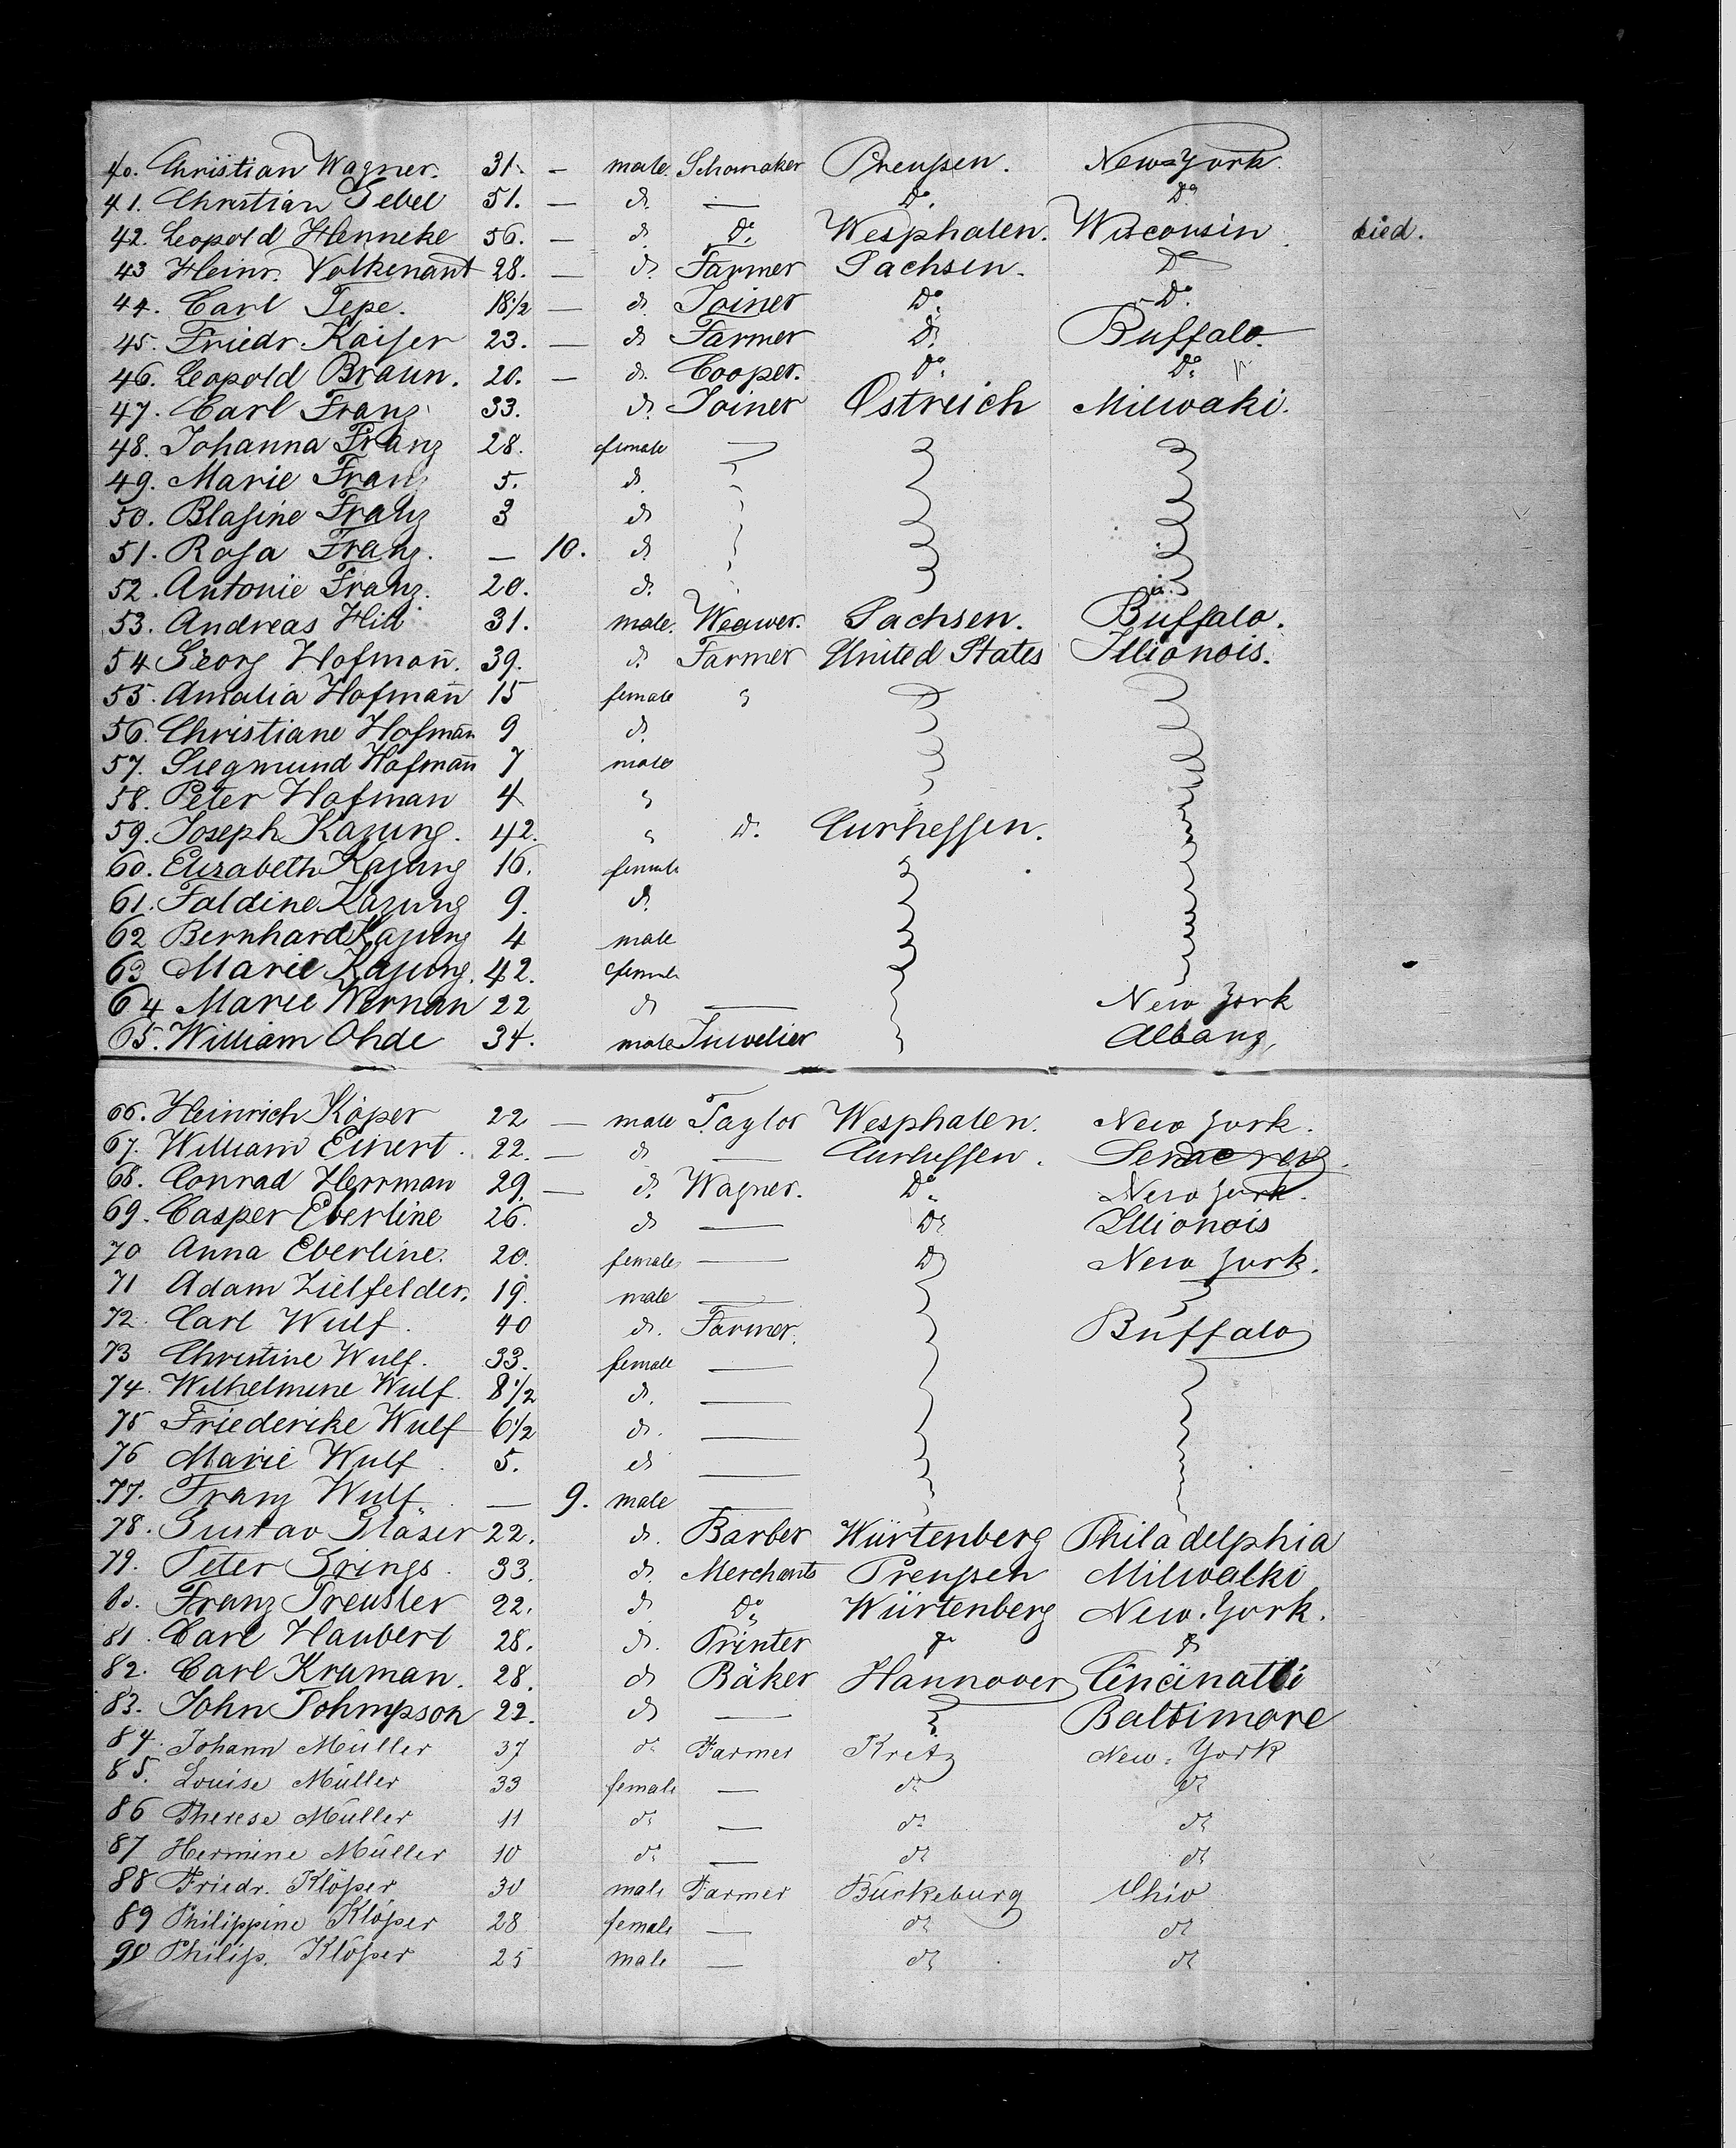 40. Christian Wagner. 31. — male. Schomaker Preußen. New=York.
41. Christian Tebel 51. — do. — Do. Do.
42. Leopold Henneke 56. — do. Do. Wesphalen. Wisconsin died.
43 Heinr. Volkenant 28. — do. Farmer Sachsen. Do
44. Carl Tepe. 18 1/2 — do. Joiner Do. Do.
45. Friedr. Kaiser 23. — do Farmer Do. Buffalo.
46. Leopold Braun. 20. — do. Cooper. Do. Do.
47. Carl Franz 33. do. Joiner Östreich Milwaki.
48. Johanna Franz 28. female —
49. Marie Franz 5. do.
50. Blasine Franz 3 do
51. Rosa Franz. — 10. do.
52. Antonie Franz. 20. do.
53. Andreas Hill 31. male. Weawer. Sachsen. Buffalo.
54 Georg Hofman̄. 39. do. Farmer United States Illionois.
55. Amalia Hofman̄ 15 female
56. Christiane Hofman̄ 9 do.
57. Siegmund Hofman̄ 7 male
58. Peter Hofman 4
59. Joseph Kazung. 42. Do. Curhessen.
60. Elizabeth Kazung 16. female
61. Faldine Kazung 9. do.
62 Bernhard Kazung 4 male
63 Marie Kazung. 42. female
64 Marie Wernan 22 do — New York
65. William Ohde 34. male Juwelier Albany,
66. Heinrich Köper 22 — male Taylor Wesphalen. New York.
67. William Einert. 22. — do — Curhessen.
68. Conrad Herrman 29. — do. Wagner. Do. New York.
69. Casper Eberline 26. do — Do. Illionois
70 Anna Eberline. 20. female — Do New York.
71 Adam Zielfelder. 19. male —
72. Carl Wulf. 40 do. Farmer. Buffalo
73 Christine Wulf. 33. female —
74. Wilhelmine Wulf. 8 1/2 do. —
75 Friederike Wulf 6 1/2 do. —
76 Marie Wulf. 5. do —
77. Franz Wulf. — 9. male —
78. Gustav Gläser 22. do. Barber Würtenberg Philadelphia
79. Peter Grings. 33. do. Merchants Preußen Milwalki
80. Franz Treusler 22. do Do. Würtenberg New. York.
81. Carl Haubert 28. do. Printer do do
82. Carl Kraman. 28. do Bäker Hannover Cincinatti
83. John Tohmpson 22. do — Baltimore
84. Johann Müller 37 do Farmer Kretz New. York
85. Louise Müller 33 female — do do
86 Therese Müller 11 do — do do
87 Hermine Müller 10 do — do do
88 Friedr. Klöper 30 male Farmer Bückeburg Ohio
89 Philippine Klöper 28 female — do do
90 Philip. Klöper 25 male — do do